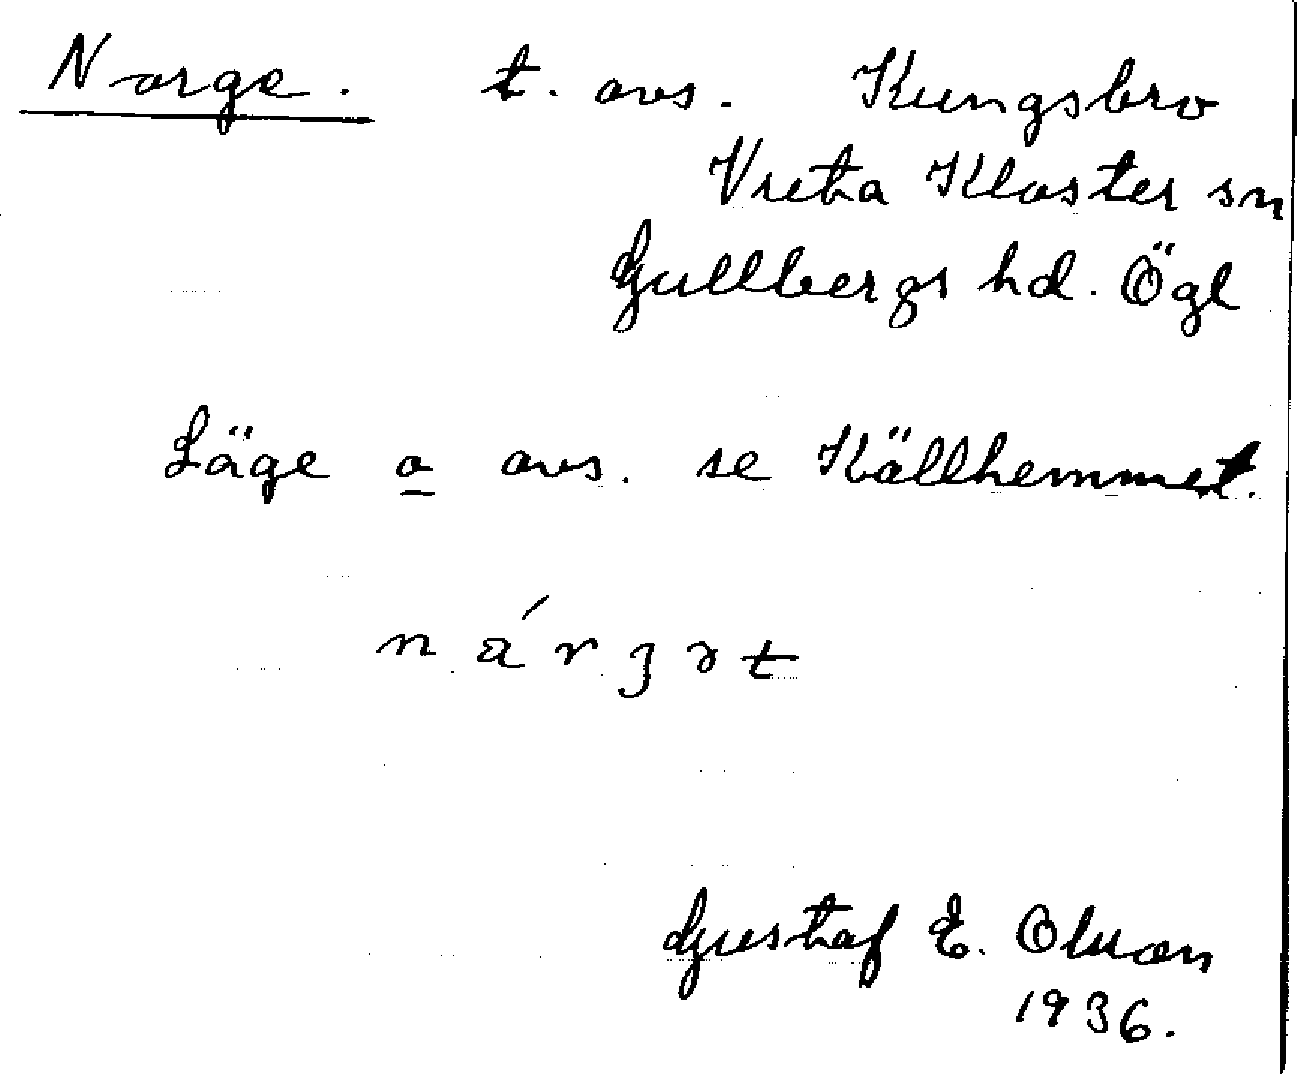 Norge. t. avs. Kungsbro
Vreta Kloster sn
Gullbergs hd. Ögl
Läge o avs. se Källhemmet.
n á r ʒ ə t
Gustaf E. Olson
1936.